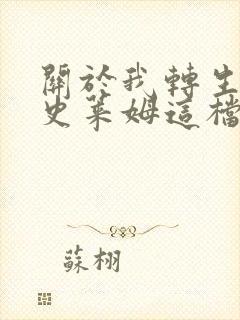 關於我轉生
史萊姆這檔
蘇栩